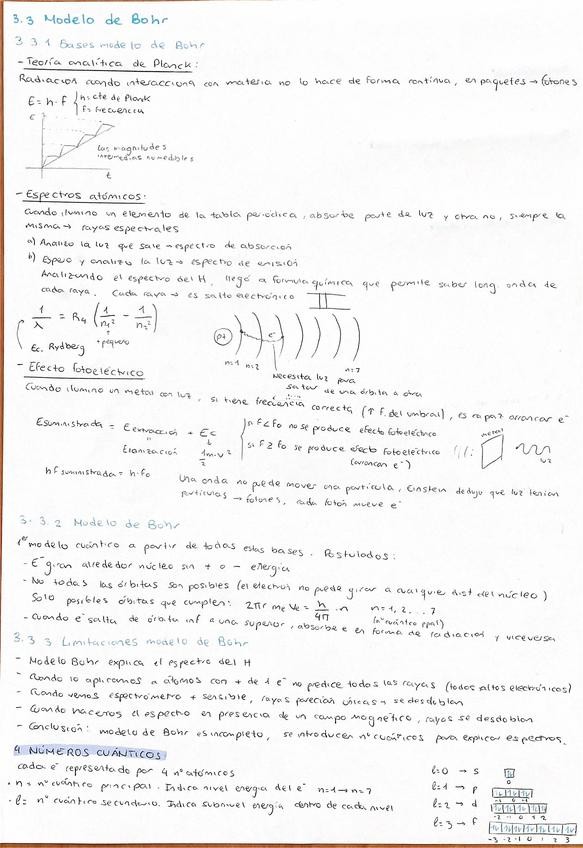 3.3 Modelo de Bohr
3.3.1 Bases modelo de Bohr
- Teoría analítica de Planck:
Radiación cuando interacciona con materia no lo hace de forma continua, en paquetes → fotones
E = h · f { h = cte de Plank
f = frecuencia
E
Las magnitudes
intermedias no medibles
t
- Espectros atómicos:
Cuando ilumino un elemento de la tabla periódica, absorbe parte de luz y otra no, siempre la
misma → rayas espectrales
a) Analizo la luz que sale → espectro de absorción
b) Espero y analizo la luz → espectro de emisión
Analizando el espectro del H, llegó a formula química que permite saber long. onda de
cada raya. Cada raya → es salto electrónico
1/λ = R4 (1/n1² - 1/n2²)
+ pequeño
Ec. Rydberg
p+
e-
n=1 n=2 n=7
Necesita luz para
saltar de una órbita a otra
- Efecto fotoeléctrico
Cuando ilumino un metal con luz, si tiene frecuencia correcta (↑ f. del umbral), es capaz arrancar e-
Esuministrada = Eextracción + Ec
Eionización 1/2 m·v²
si F < Fo no se produce efecto fotoeléctrico
si F ≥ Fo se produce efecto fotoeléctrico
(arrancan e-)
metal
luz
hf suministrada = h·fo
Una onda no puede mover una partícula, Einstein dedujo que luz tenían
partículas → fotones, cada fotón mueve e-
3.3.2 Modelo de Bohr
1er modelo cuántico a partir de todas estas bases. Postulados:
- E- giran alrededor núcleo sin + o - energía
- No todas las órbitas son posibles (el electrón no puede girar a cualquier dist del núcleo)
Solo posibles órbitas que cumplen: 2πr me Ve = h/4π · n n = 1, 2... 7
(nº cuántico ppal)
- Cuando e- salta de órbita inf a una superior, absorbe e en forma de radiación y viceversa
3.3.3 Limitaciones modelo de Bohr
- Modelo Bohr explica el espectro del H
- Cuando lo aplicamos a átomos con + de 1 e- no predice todas las rayas (todos saltos electrónicos)
- Cuando vemos espectrómetro + sensible, rayas parecían únicas → se desdoblan
- Cuando hacemos el espectro en presencia de un campo magnético, rayas se desdoblan
- Conclusión: modelo de Bohr es incompleto, se introducen nº cuánticos para explicar espectros.
4 NÚMEROS CUÁNTICOS:
cada e- representado por 4 nº atómicos
· n = nº cuántico principal. Indica nivel energía del e- n=1 → n=7
· l = nº cuántico secundario. Indica subnivel energía dentro de cada nivel
l=0 → s
0
l=1 → p
-1 0 +1
l=2 → d
-2 -1 0 1 2
l=3 → f
-3 -2 -1 0 1 2 3